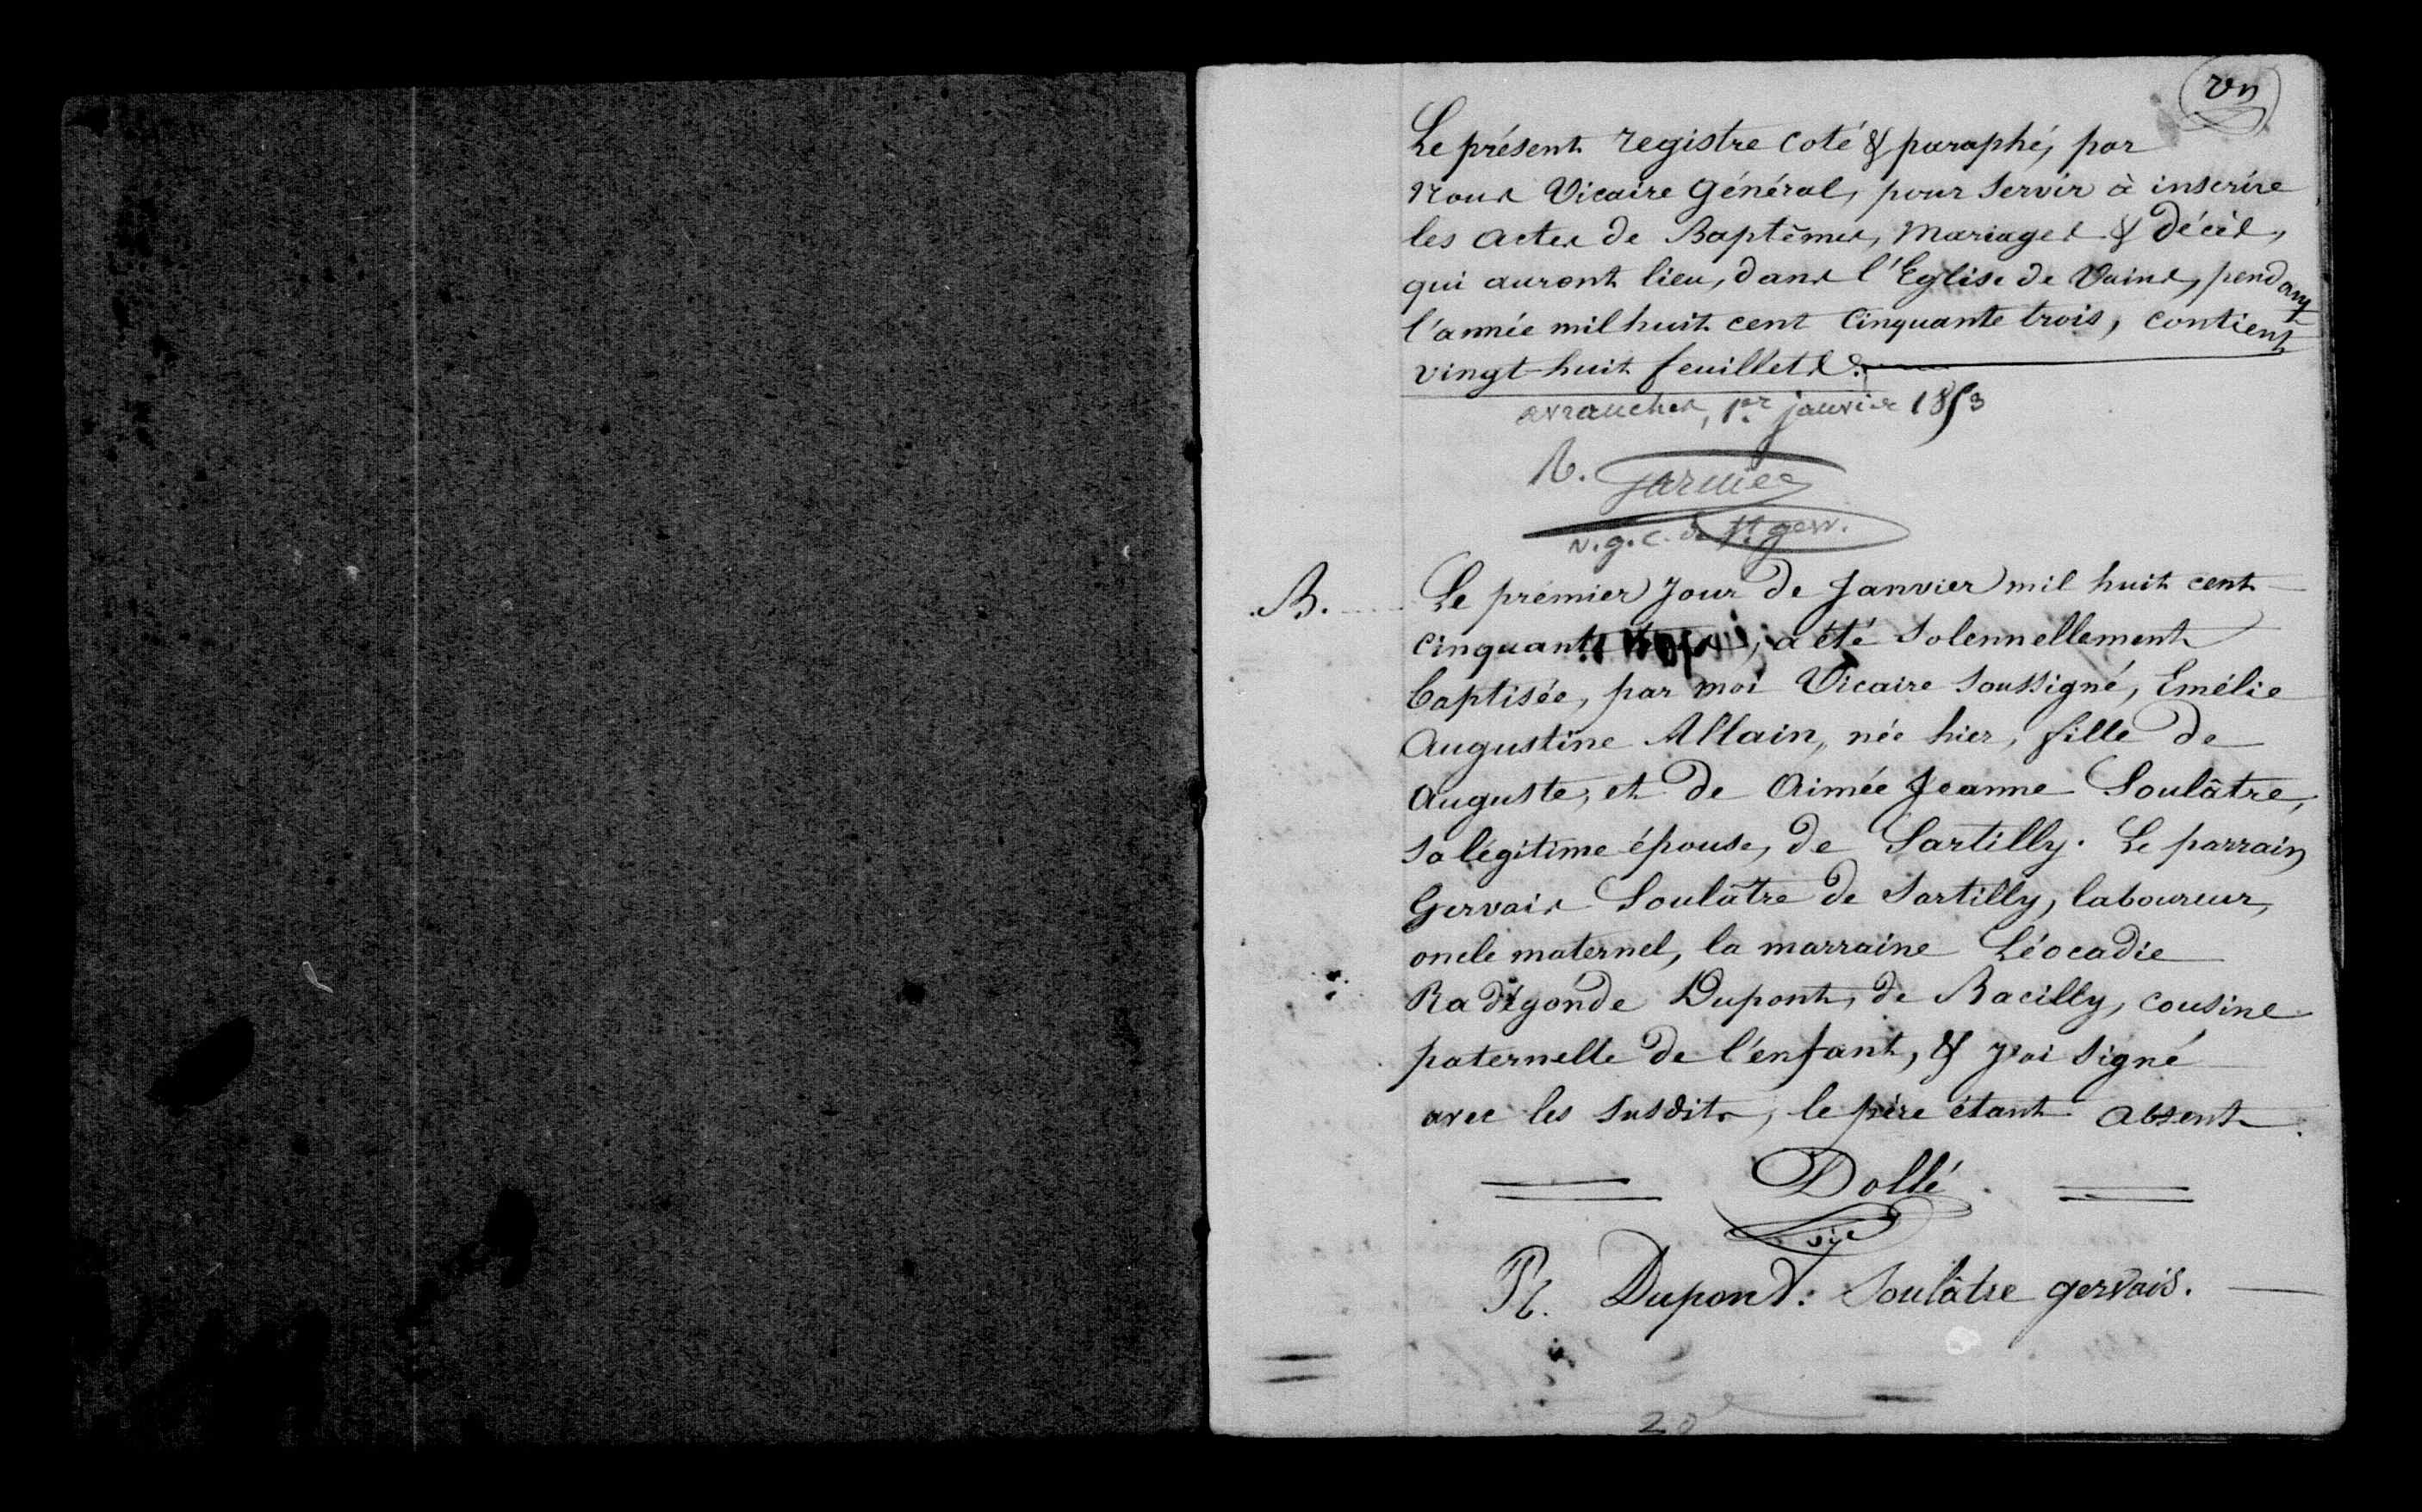 un
Le présent registre coté & paraphé, par
Nous Vicaire Général, pour servir à inscrire
les actes de Baptêmes, Mariages & décès,
qui auront lieu, dans l'Eglise de Vains, pendant
l'année mil huit cent Cinquante trois, contient
vingt-huit feuillets.
avranches, 1er janvier 1853
v.g.c. de St gerv.
B. Le premier jour de Janvier mil huit cent
cinquante trois, a été solennellement
baptisée, par moi Vicaire soussigné, Emélie
Augustine Allain, née hier, fille de
Auguste, et de Aimée Jeanne Soulâtre,
sa légitime épouse, de Sartilly. Le parrain
Gervais Soulâtre de Sartilly, laboureur,
oncle maternel, la marraine Léocadie
Radégonde Dupont, de Bacilly, cousine
paternelle de l'enfant, & j'ai signé
avec les susdits, le père étant absent.
Dollé
vic
R. Dupont. Soulâtre gervais.